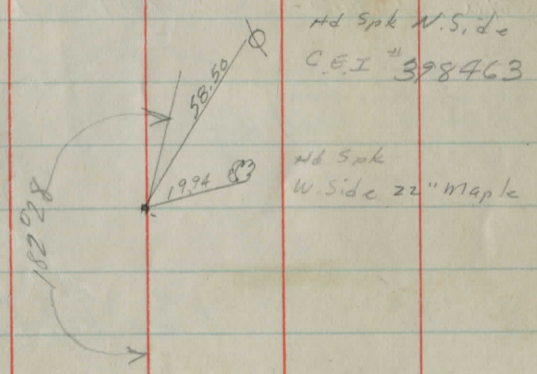 Hd Spk N. Side
C.E.I # 398463
58.50
Hd Spk
W. Side 22" Maple
19.94
182°28